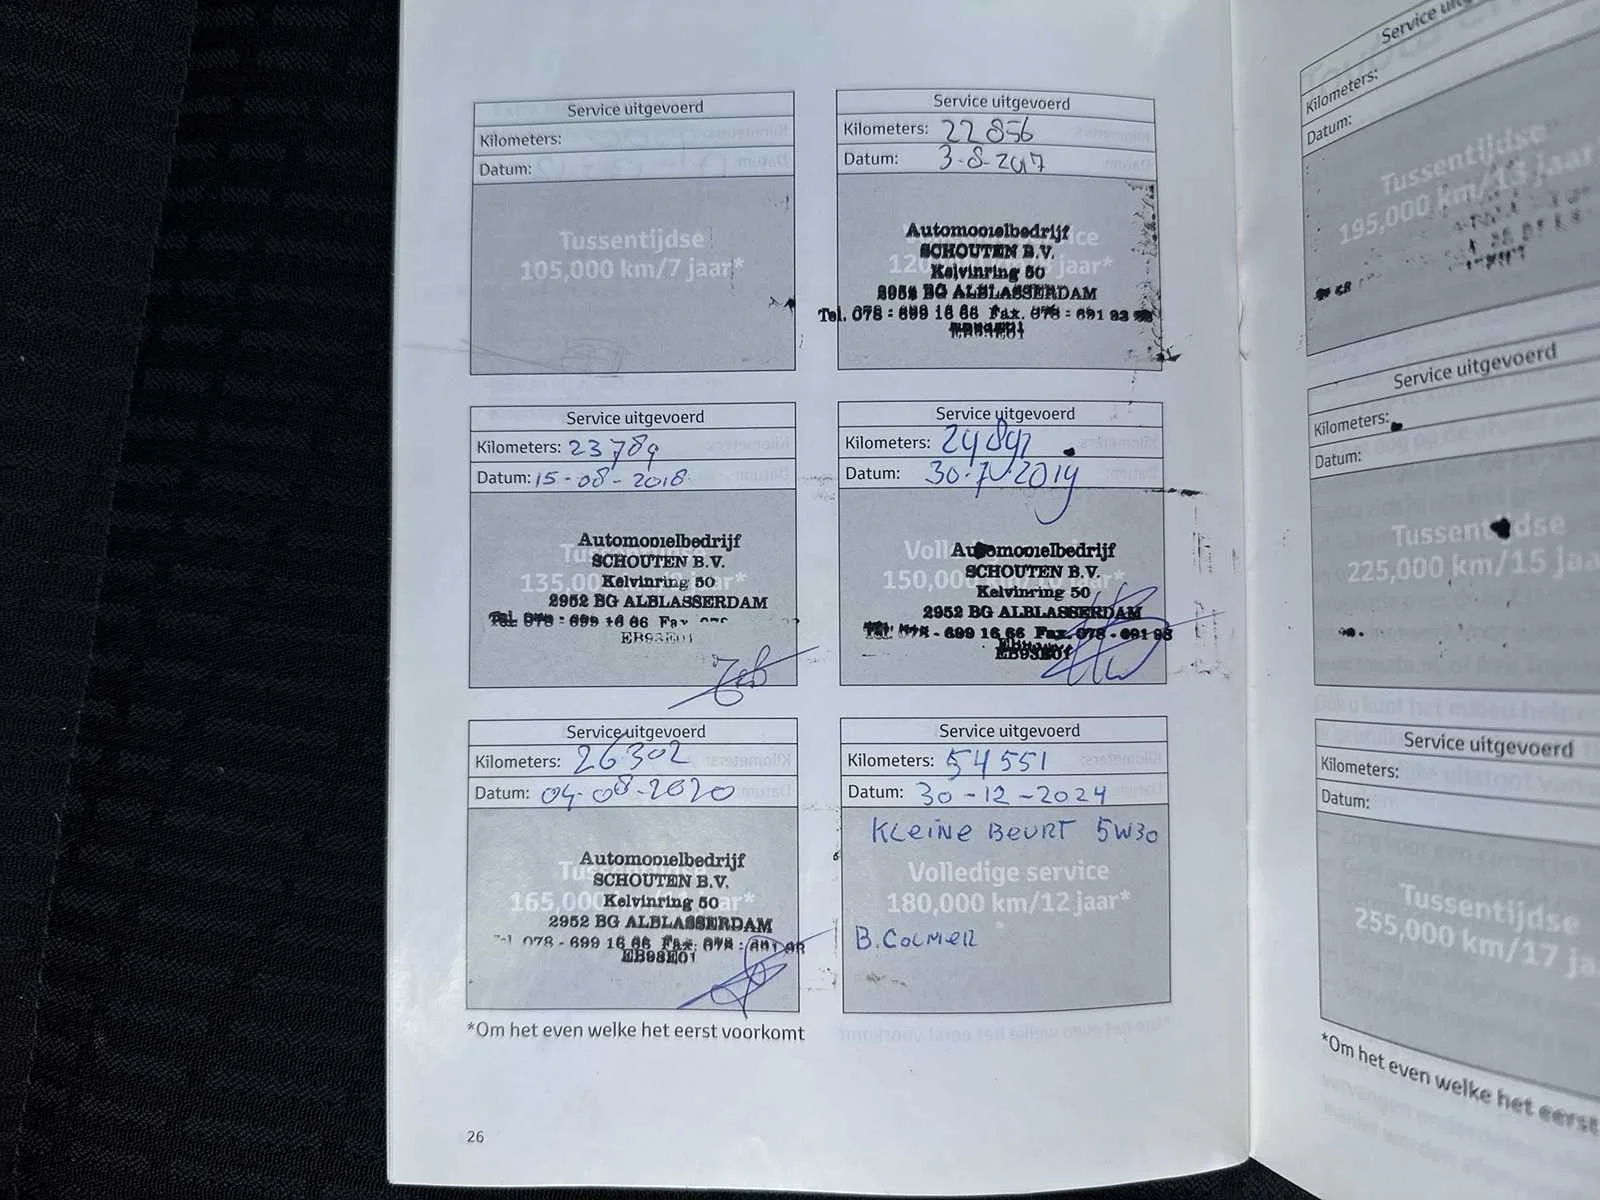 Service uitgevoerd
Kilometers:
Datum:
Tussentijdse
105,000 km/7 jaar*
Service uitgevoerd
Kilometers: 22856
Datum: 3-8-2017
Automobielbedrijf
SCHOUTEN B.V.
Kelvinring 50
2952 BG ALBLASSERDAM
Tel. 078 - 699 16 66 Fax. 078 - 691 93
EB93E01
Service uitgevoerd
Kilometers: 23789
Datum: 15-08-2018
Automobielbedrijf
SCHOUTEN B.V.
135,000
Kelvinring 50
2952 BG ALBLASSERDAM
Tel. 078 - 699 16 66 Fax
EB93E01
Service uitgevoerd
Kilometers:
Datum: 30-7-2019
Automobielbedrijf
SCHOUTEN B.V.
150,000
Kelvinring 50
2952 BG ALBLASSERDAM
Tel. 078 - 699 16 66 Fax. 078 - 691 93
EB93E01
Service uitgevoerd
Kilometers: 26302
Datum: 04-08-2020
Automobielbedrijf
SCHOUTEN B.V.
165,000
Kelvinring 50
2952 BG ALBLASSERDAM
078 - 699 16 66 Fax. 078 -
EB93E01
Service uitgevoerd
Kilometers: 54551
Datum: 30-12-2024
KLEINE BEURT 5W30
Volledige service
180,000 km/12 jaar*
B. COLMER
*Om het even welke het eerst voorkomt
26
Service
Kilometers:
Datum:
Tussentijdse
195,000 km/13 jaar
Service uitgevoerd
Kilometers:
Datum:
Tussentijdse
225,000 km/15
Service uitgevoerd
Kilometers:
Datum:
Tussentijdse
255,000 km/17
*Om het even welke het eerst